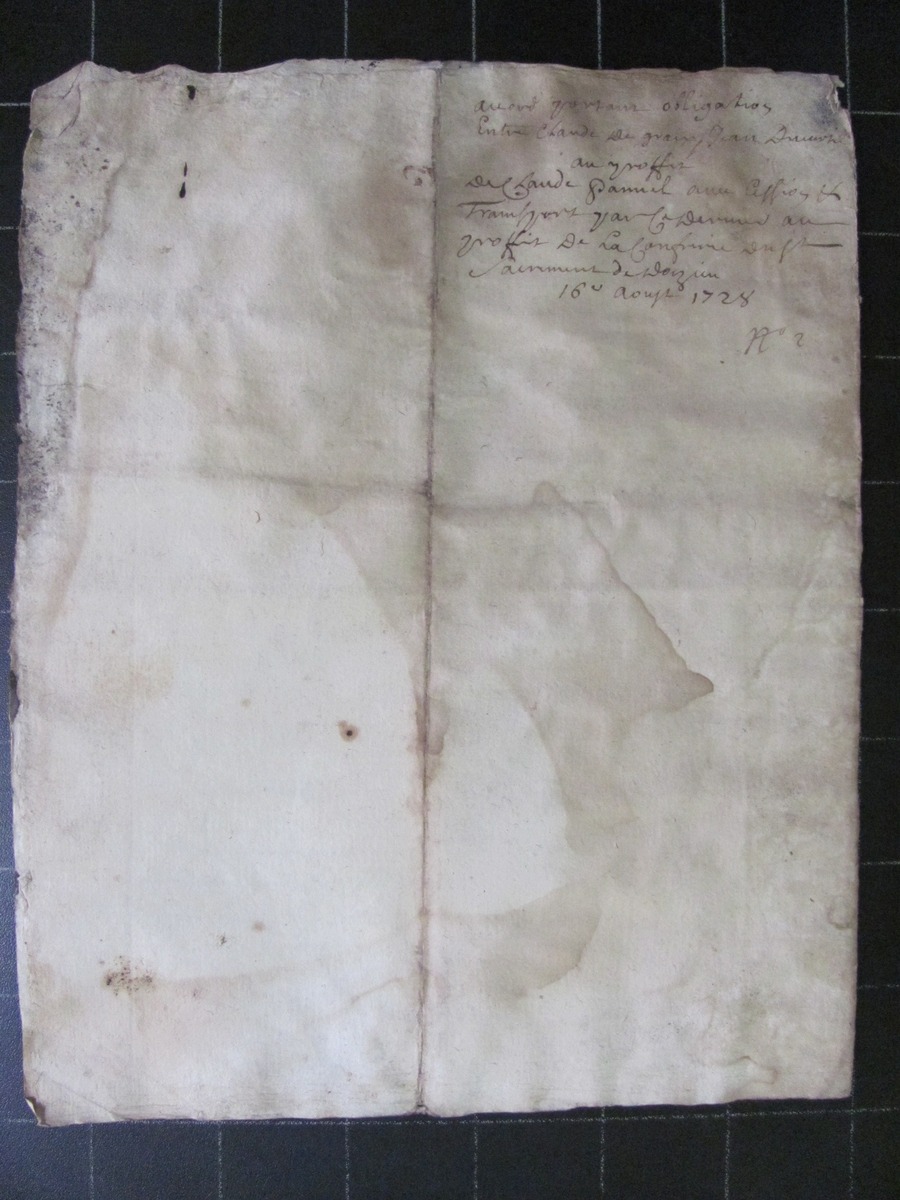 accord portant obligation
Entre Claude De grany Jean
au proffit
De Claude avec Cession et
Transport par Ce Dernier au
proffit De La Confrerie Du st
Sacrement de Doizieu
16e Aoust 1728
No 2